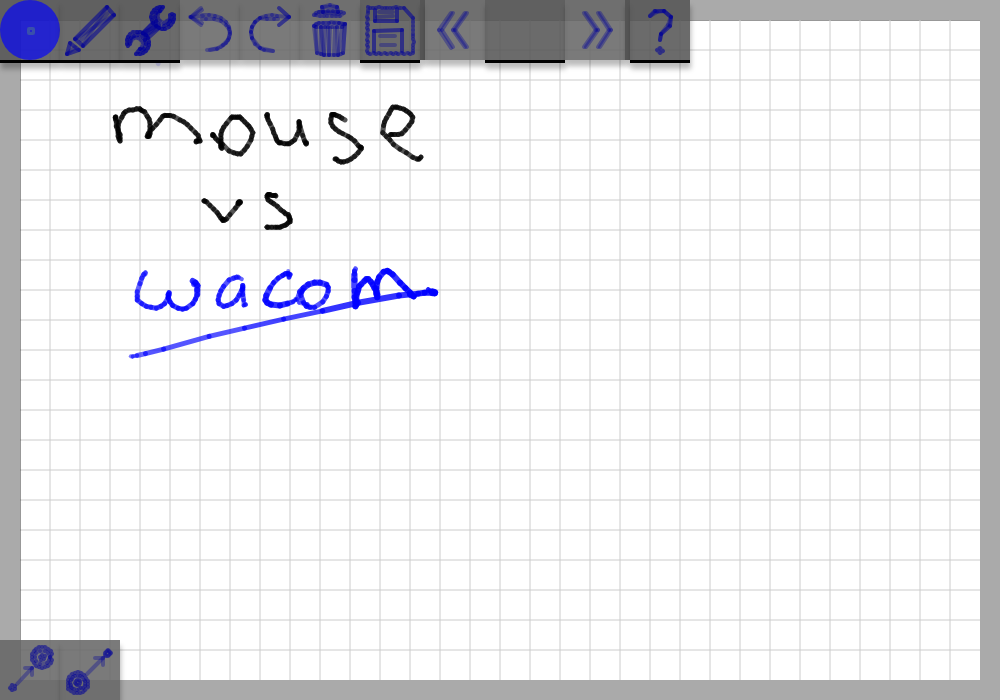 mouse
vs
wacom